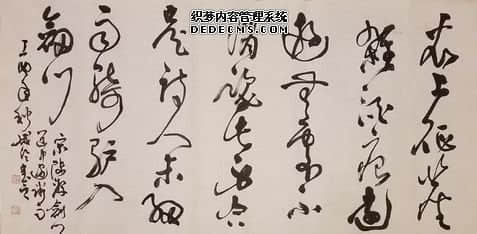 织梦内容管理系统
DEDECMS.COM
衣上征尘
杂酒痕远
游无处不
消魂此身合
是诗人未细
雨骑驴入
剑门
宋陆游剑门
道中遇微雨
年秋